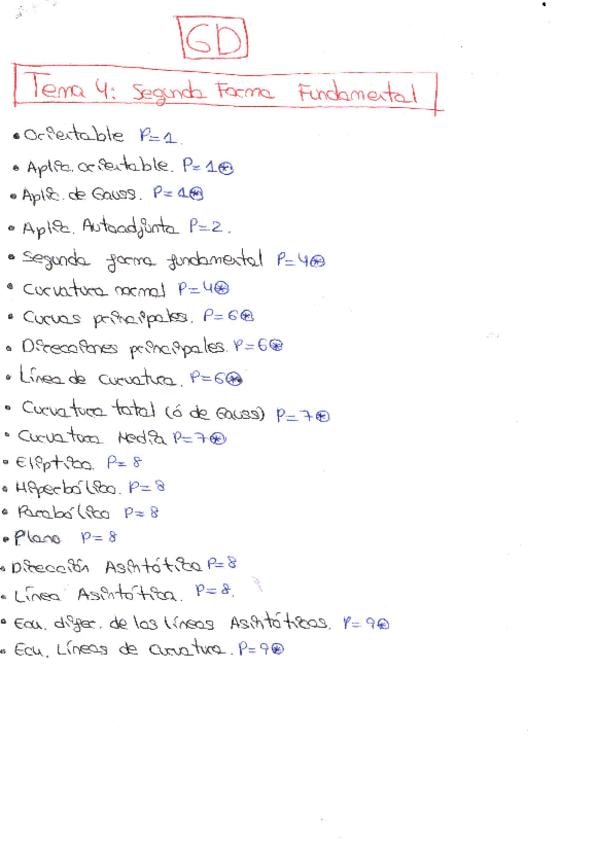 GD
Tema 4: Segunda Forma Fundamental
• Orientable P=1.
• Aplic. orientable. P=1⊛
• Aplic. de Gauss. P=1⊛
• Aplic. Autoadjunta P=2.
• Segunda forma fundamental P=4⊛
• Curvatura normal P=4⊛
• Curvas principales. P=6⊛
• Direcciones principales. P=6⊛
• Línea de curvatura. P=6⊛
• Curvatura total (ó de Gauss) P=7⊛
• Curvatura Media P=7⊛
• Elíptico. P=8
• Hiperbólico. P=8
• Parabólico P=8
• Plano P=8
• Dirección Asintótica P=8
• Línea Asintótica. P=8.
• Ecu. difer. de las líneas Asintóticas. P=9⊛
• Ecu. Líneas de curvatura. P=9⊛